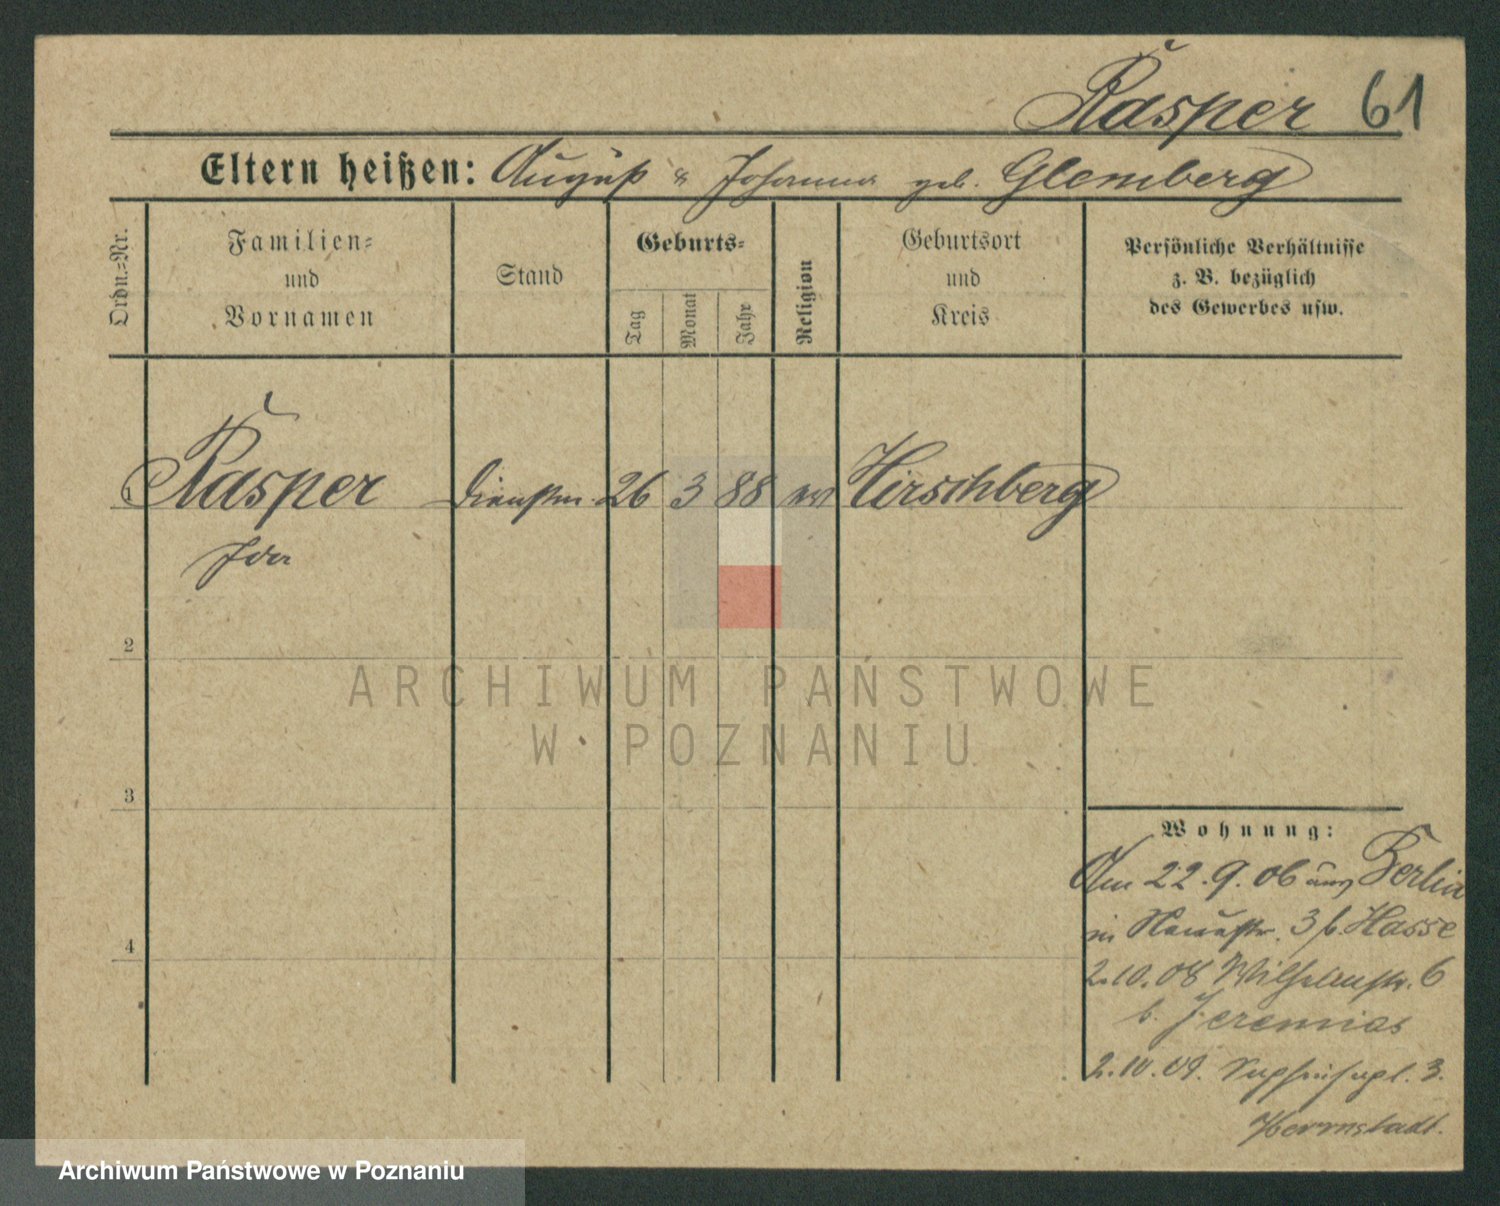 Rasper 61
Eltern heißen: August & Johanna geb. Glemberg
Ordn.=Nr.
Familien=
und
Vornamen
Stand
Geburts=
Tag
Monat
Jahr
Religion
Geburtsort
und
Kreis
Persönliche Verhältnisse
z. B. bezüglich
des Gewerbes usw.
1 Rasper Dienstm. 26 3 88 ev Hirschberg
Ida
2
3
4
Wohnung:
Am 22.9.06 aus Berlin
in Neuestr. 3 b. Hasse
2.10.08 Wilhelmstr. 6
b. Jeremias
2.10.09. Sapiehapl. 3.
Herrnstadt.
ARCHIWUM PAŃSTWOWE
W POZNANIU
Archiwum Państwowe w Poznaniu